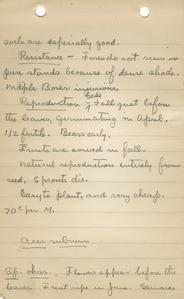 soils are especially good.
Resistance - Fires do not run in
pure stands because of dense shade.
Maple Borer injurious.
Reproduction - Fall just before
the leaves, germinating in April.
1/2 fertile. Bears early.
Fruits are sowed in fall.
Natural reproduction entirely from
seed, Sprouts die.
Easy to plant, and very cheap.
70¢ per M.
Acer rubrum
Sp. char. Flowers appear before the
leaves. Fruit ripe in June. Samaras